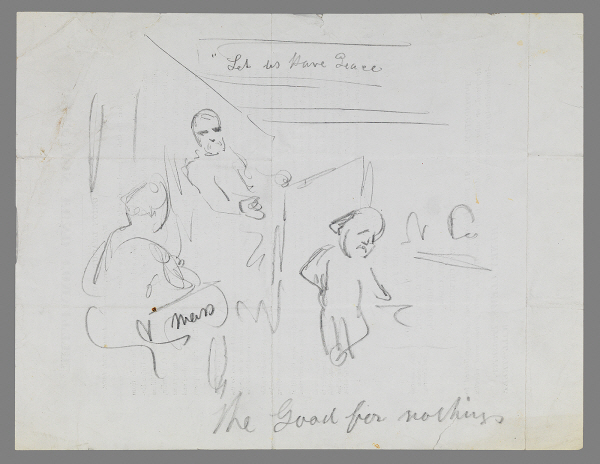 "Let us Have Peace
Mass
The Good for nothings